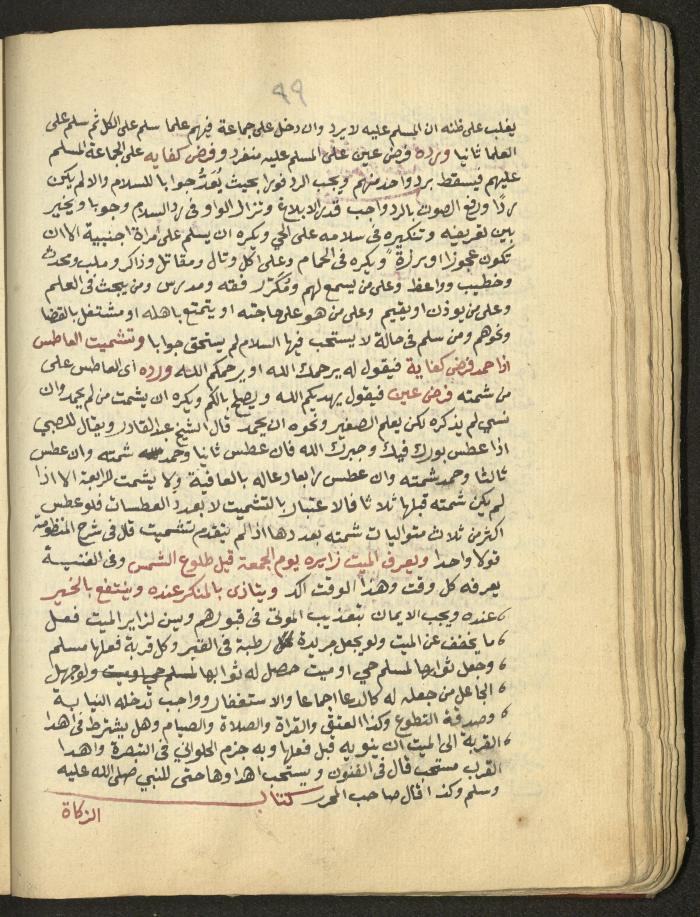 ٩٩
يغلب على ظنه ان المسلم عليه لا يرد وان دخل على جماعة فيهم علما سلم على الكل ثم سلم على
العلما ثانيا ورده فرض عين على المسلم عليه منفرد وفرض كفايه على الجماعة المسلم
عليهم فيسقط برد واحد منهم ويجب الرد فورا بحيث يُعَدُّ جوابا للسلام والا لم يكن
ردًا ورفع الصوت بالرد واجب قدر الابلاغ وتزاد الواو في رد السلام وجوبا ويخير
بين تعريفه وتنكيره في سلامه على الحي ويكره ان يسلم على امراة اجنبية الا ان
تكون عجوزا او برزة ويكره في الحمام وعلى اكل وتال ومقاتل وذاكر وملب ومحدث
وخطيب وواعظ وعلى من يسمع لهم ومكرر فقه ومدرس ومن يبحث في العلم
وعلى من يوذن او يقيم وعلى من هو على حاجته او يتمتع باهله او مشتغل بالقضا
ونحوهم ومن سلم في حالة لا يستحب فيها السلام لم يستحق جوابا وتشميت العاطس
اذا حمد فرض كفاية فيقول له يرحمك الله او يرحمكم الله ورده اى العاطس على
من شمته فرض عين فيقول يهديكم الله ويصلح بالكم ويكره ان يشمت من لم يحمد وان
نسي لم يذكره لكن يعلم الصغير ونحوه ان يحمد قال الشيخ عبد القادر ويقال للصبي
اذا عطس بورك فيك وجبرك الله فان عطس ثانيا وحمد شمته وان عطس
ثالثا وحمد شمته وان عطس رابعا دعا له بالعافية ولا يشمت للرابعة الا اذا
لم يكن شمته قبلها ثلاثا فالاعتبار بالتشميت لا بعدد العطسات فلو عطس
اكثر من ثلاث متواليات شمته بعددها اذا لم يتقدم تشميت قال في شرح المنظومة
قولا واحدا ويعرف الميت زايره يوم الجمعة قبل طلوع الشمس وفي الغنية
يعرفه كل وقت وهذا الوقت اكد ويتاذى بالمنكر عنده وينتفع بالخير
عنده ويجب الايمان بتعذيب الموتى في قبورهم وسن لزاير الميت فعل
ما يخفف عن الميت ولو بجعل جريدة رطبة في القبر وكل قربة فعلها مسلم
وجعل ثوابها لمسلم حي او ميت حصل له ثوابها لمسلم حي او ميت ولو جهل
الجاعل من جعله له كالدعا اجماعا والاستغفار وواجب تدخله النيابة
وصدقة التطوع وكذا العتق والقراة والصلاة والصيام وهل يشترط في اهدا
القربة الى الميت ان ينويه قبل فعلها وبه جزم الحلواني في التبصرة واهدا
القرب مستحب قال في الفنون ويستحب اهداوها حتى للنبي صلى الله عليه
وسلم وكذا قال صاحب المحرر كتاب
الزكاة